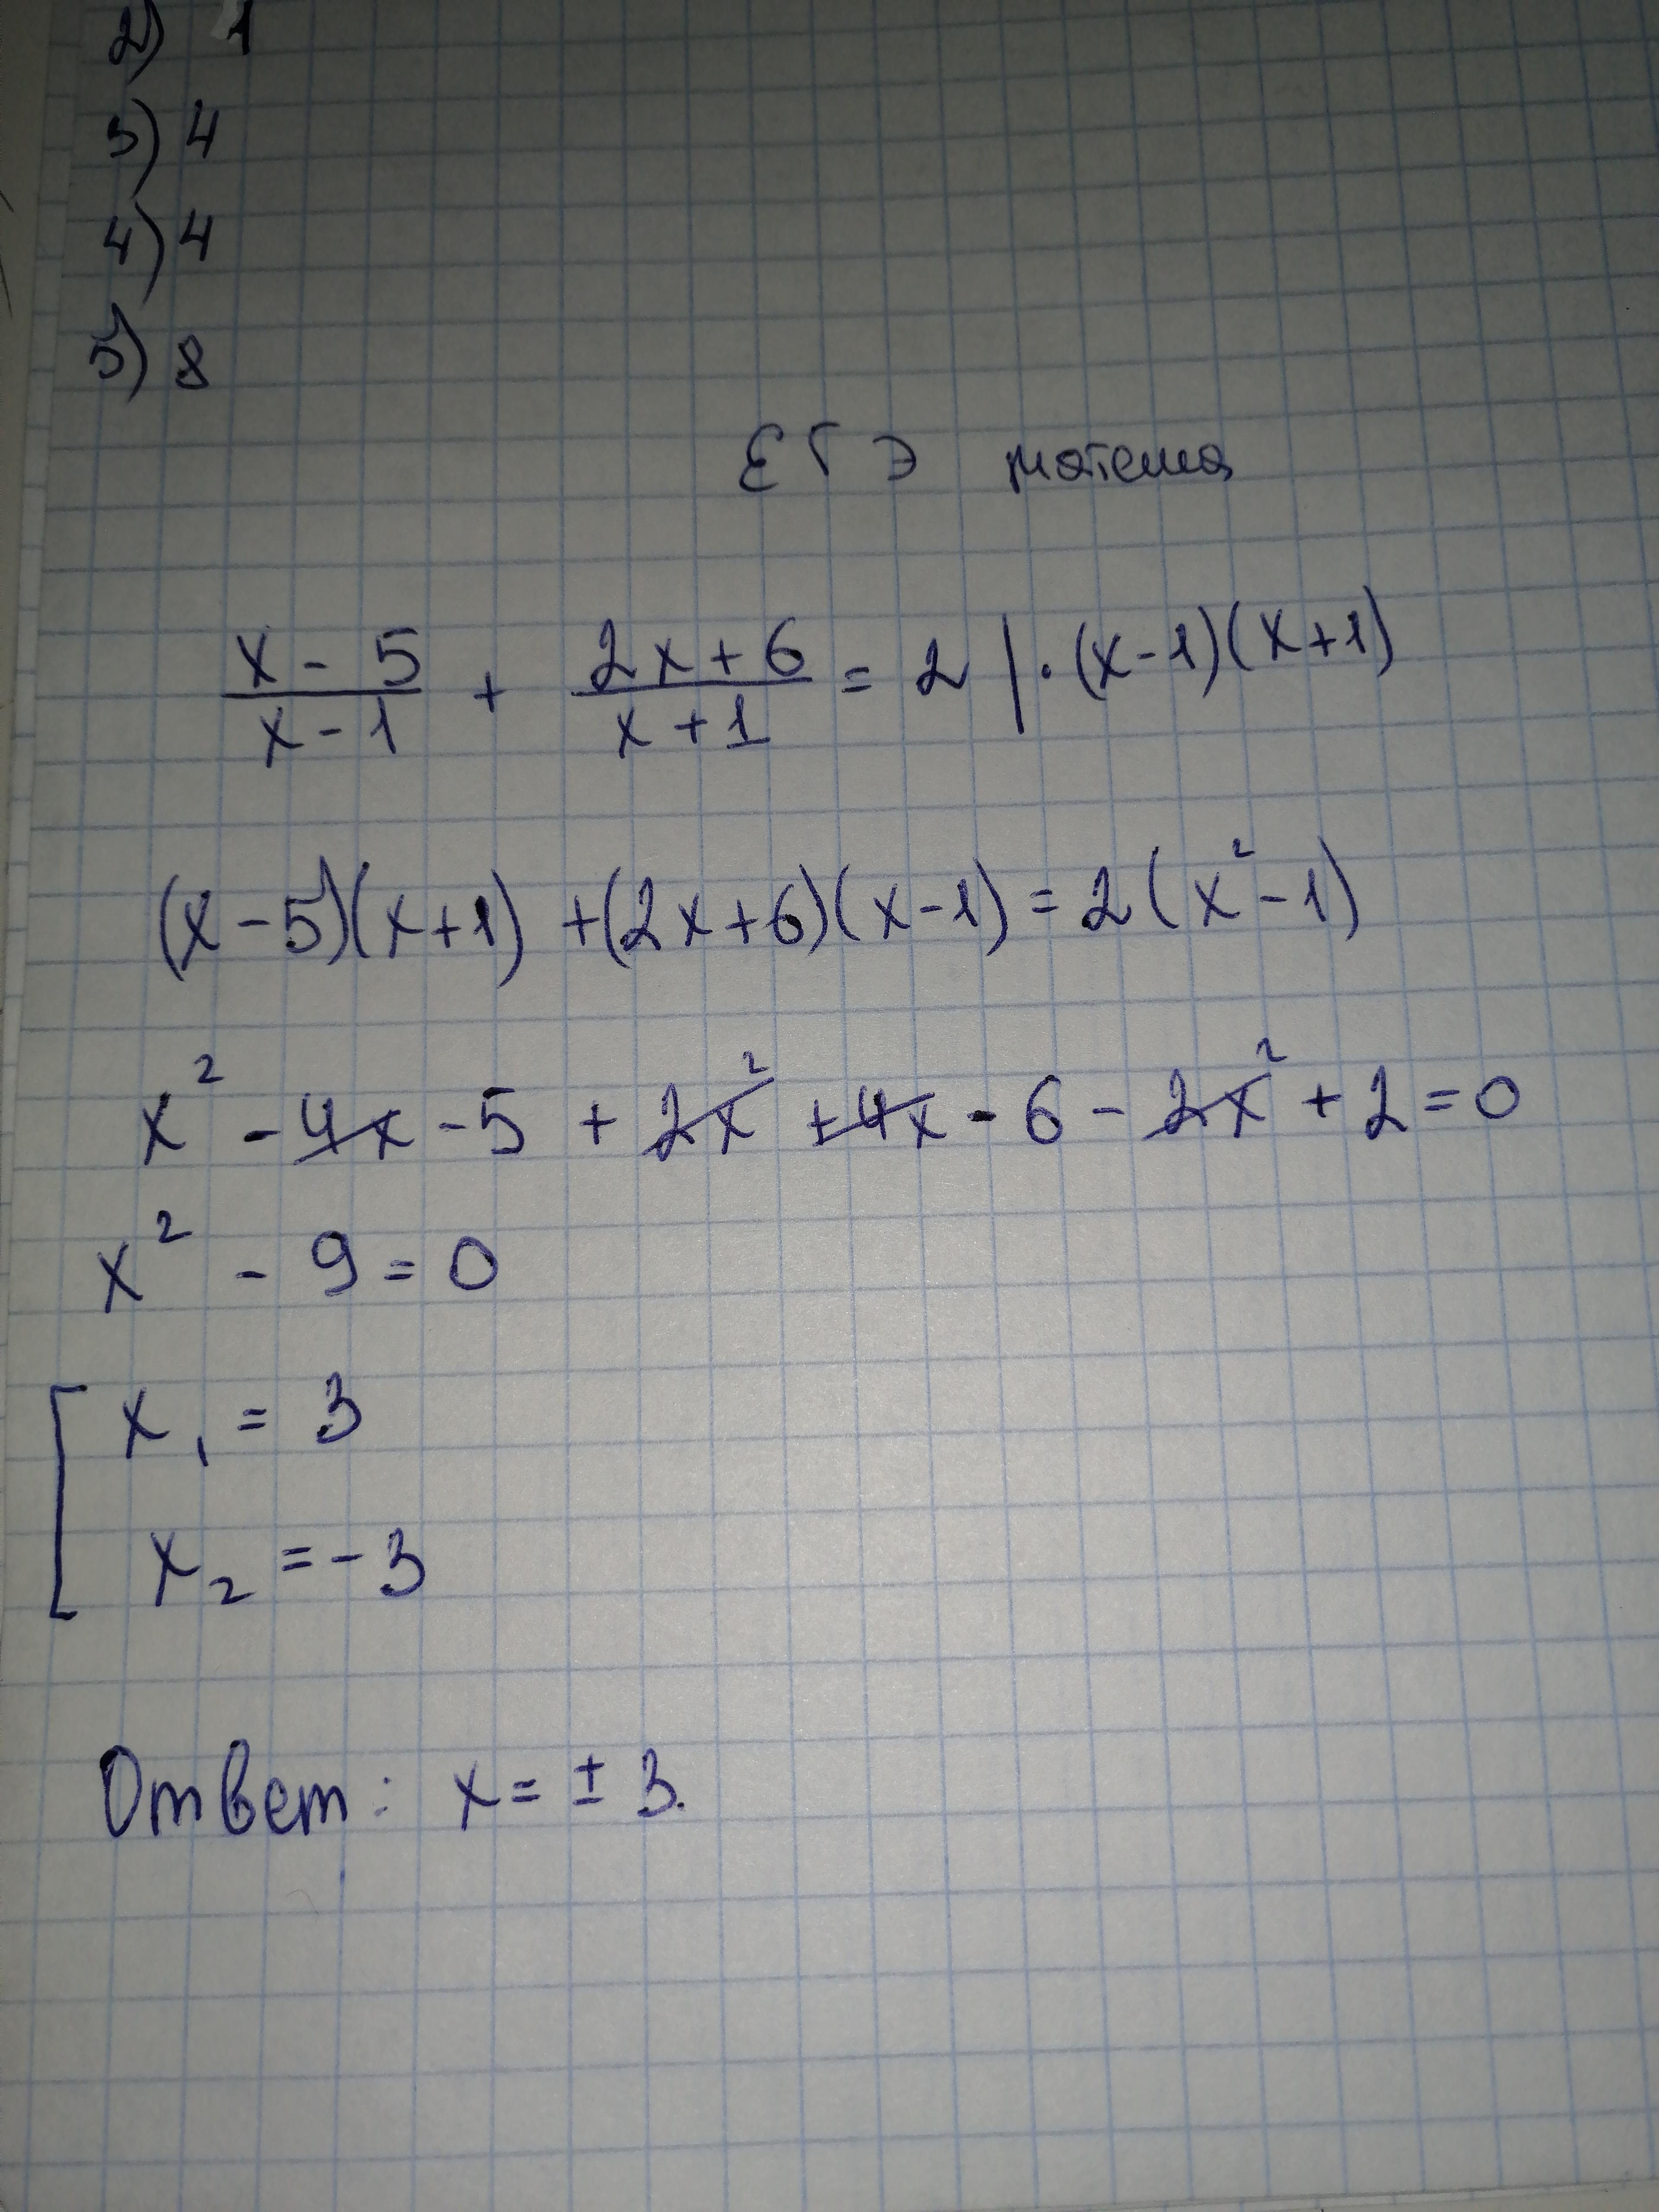 2) 1
3) 4
4) 4
5) 8
ЕГЭ матема
x - 5 / x - 1 + 2x + 6 / x + 1 = 2 | · (x - 1)(x + 1)
(x - 5)(x + 1) + (2x + 6)(x - 1) = 2(x² - 1)
x² - 4x - 5 + 2x² + 4x - 6 - 2x² + 2 = 0
x² - 9 = 0
x₁ = 3
x₂ = -3
Ответ: x = ± 3.